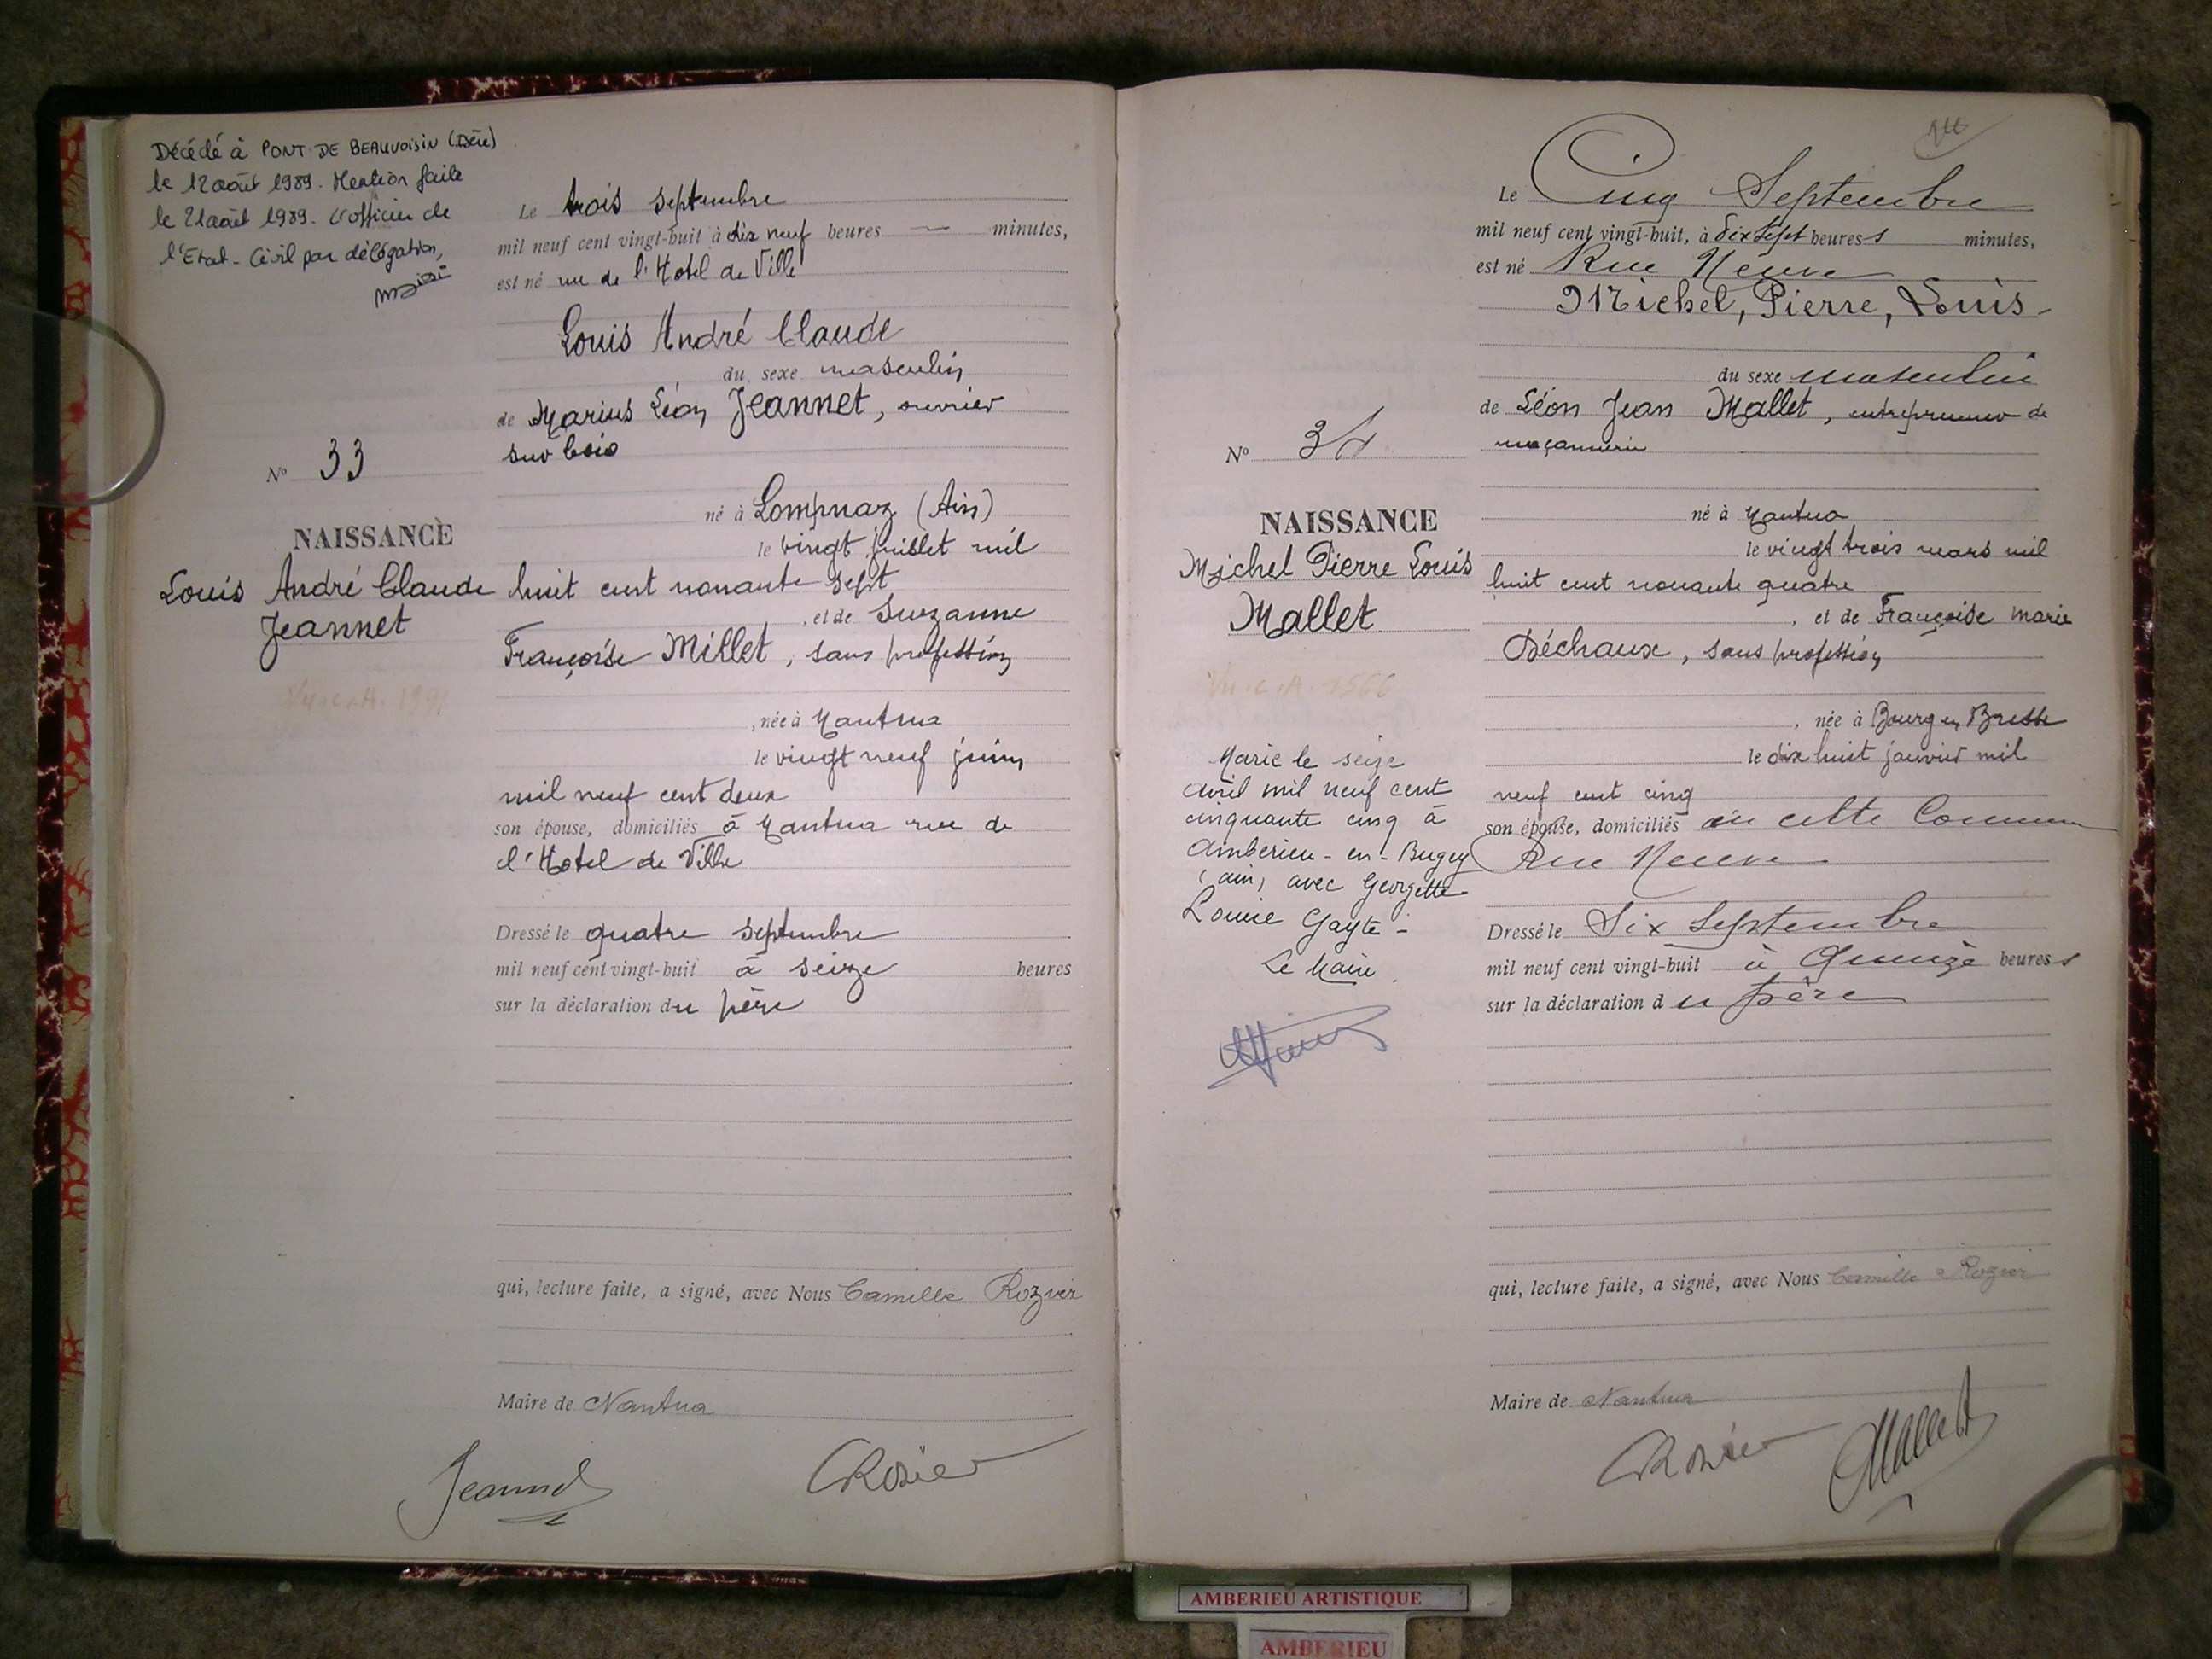 Décédé à PONT DE BEAUVOISIN (Isère)
le 12 août 1989. Mention faite
le 21 août 1989. L'officier de
l'Etat-Civil par délégation,
Le trois septembre
mil neuf cent vingt-huit à dix neuf heures — minutes,
est né rue de l'Hotel de Ville
Louis André Claude
du sexe masculin
de Marius Léon Jeannet, ouvrier
sur bois
N° 33
né à Lompnaz (Ain)
NAISSANCE
le vingt juillet mil
Louis André Claude
Jeannet
huit cent nonante sept
, et de Suzanne
Françoise Millet, sans profession
, née à Nantua
le vingt neuf juin
mil neuf cent deux
son épouse, domiciliés à Nantua rue de
l'Hotel de Ville
Dressé le quatre septembre
mil neuf cent vingt-huit à seize heures
sur la déclaration du père
qui, lecture faite, a signé, avec Nous Camille Rozier
Maire de Nantua
Jeannet CRozier
Le Cinq Septembre
mil neuf cent vingt-huit, à dix sept heures minutes,
est né Rue Neuve
Michel, Pierre, Louis -
du sexe masculin
de Léon Jean Mallet, entrepreneur de
maçonnerie
N° 34
né à Nantua
NAISSANCE
le vingt trois mars mil
Michel Pierre Louis
Mallet
huit cent nonante quatre
, et de Françoise Marie
Déchaux, sans profession
, née à Bourg en Bresse
le dix huit janvier mil
neuf cent cinq
son épouse, domiciliés en cette Commune
Rue Neuve
Marié le seize
avril mil neuf cent
cinquante cinq à
Ambérieu-en-Bugey
(ain) avec Georgette
Louise Gayte -
Le Maire
Dressé le Six Septembre
mil neuf cent vingt-huit à Quinze heures
sur la déclaration du père
qui, lecture faite, a signé, avec Nous Camille Rozier
Maire de Nantua
CRozier Mallet
AMBERIEU ARTISTIQUE
AMBERIEU